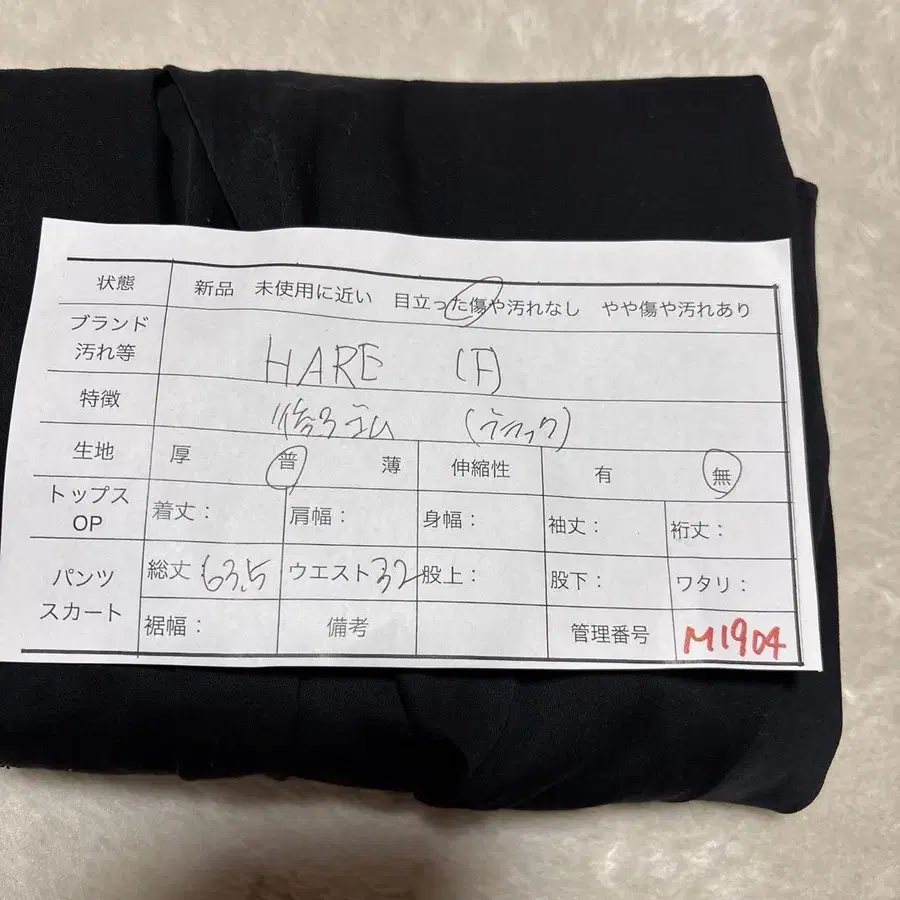 状態 新品 未使用に近い 目立った傷や汚れなし やや傷や汚れあり
ブランド
汚れ等 HARE (F)
特徴 後ろゴム (ブラック)
生地 厚 普 薄 伸縮性 有 無
トップス
OP 着丈: 肩幅: 身幅: 袖丈: 裄丈:
パンツ
スカート 総丈:63.5 ウエスト32 股上: 股下: ワタリ:
裾幅: 備考 管理番号 M1904